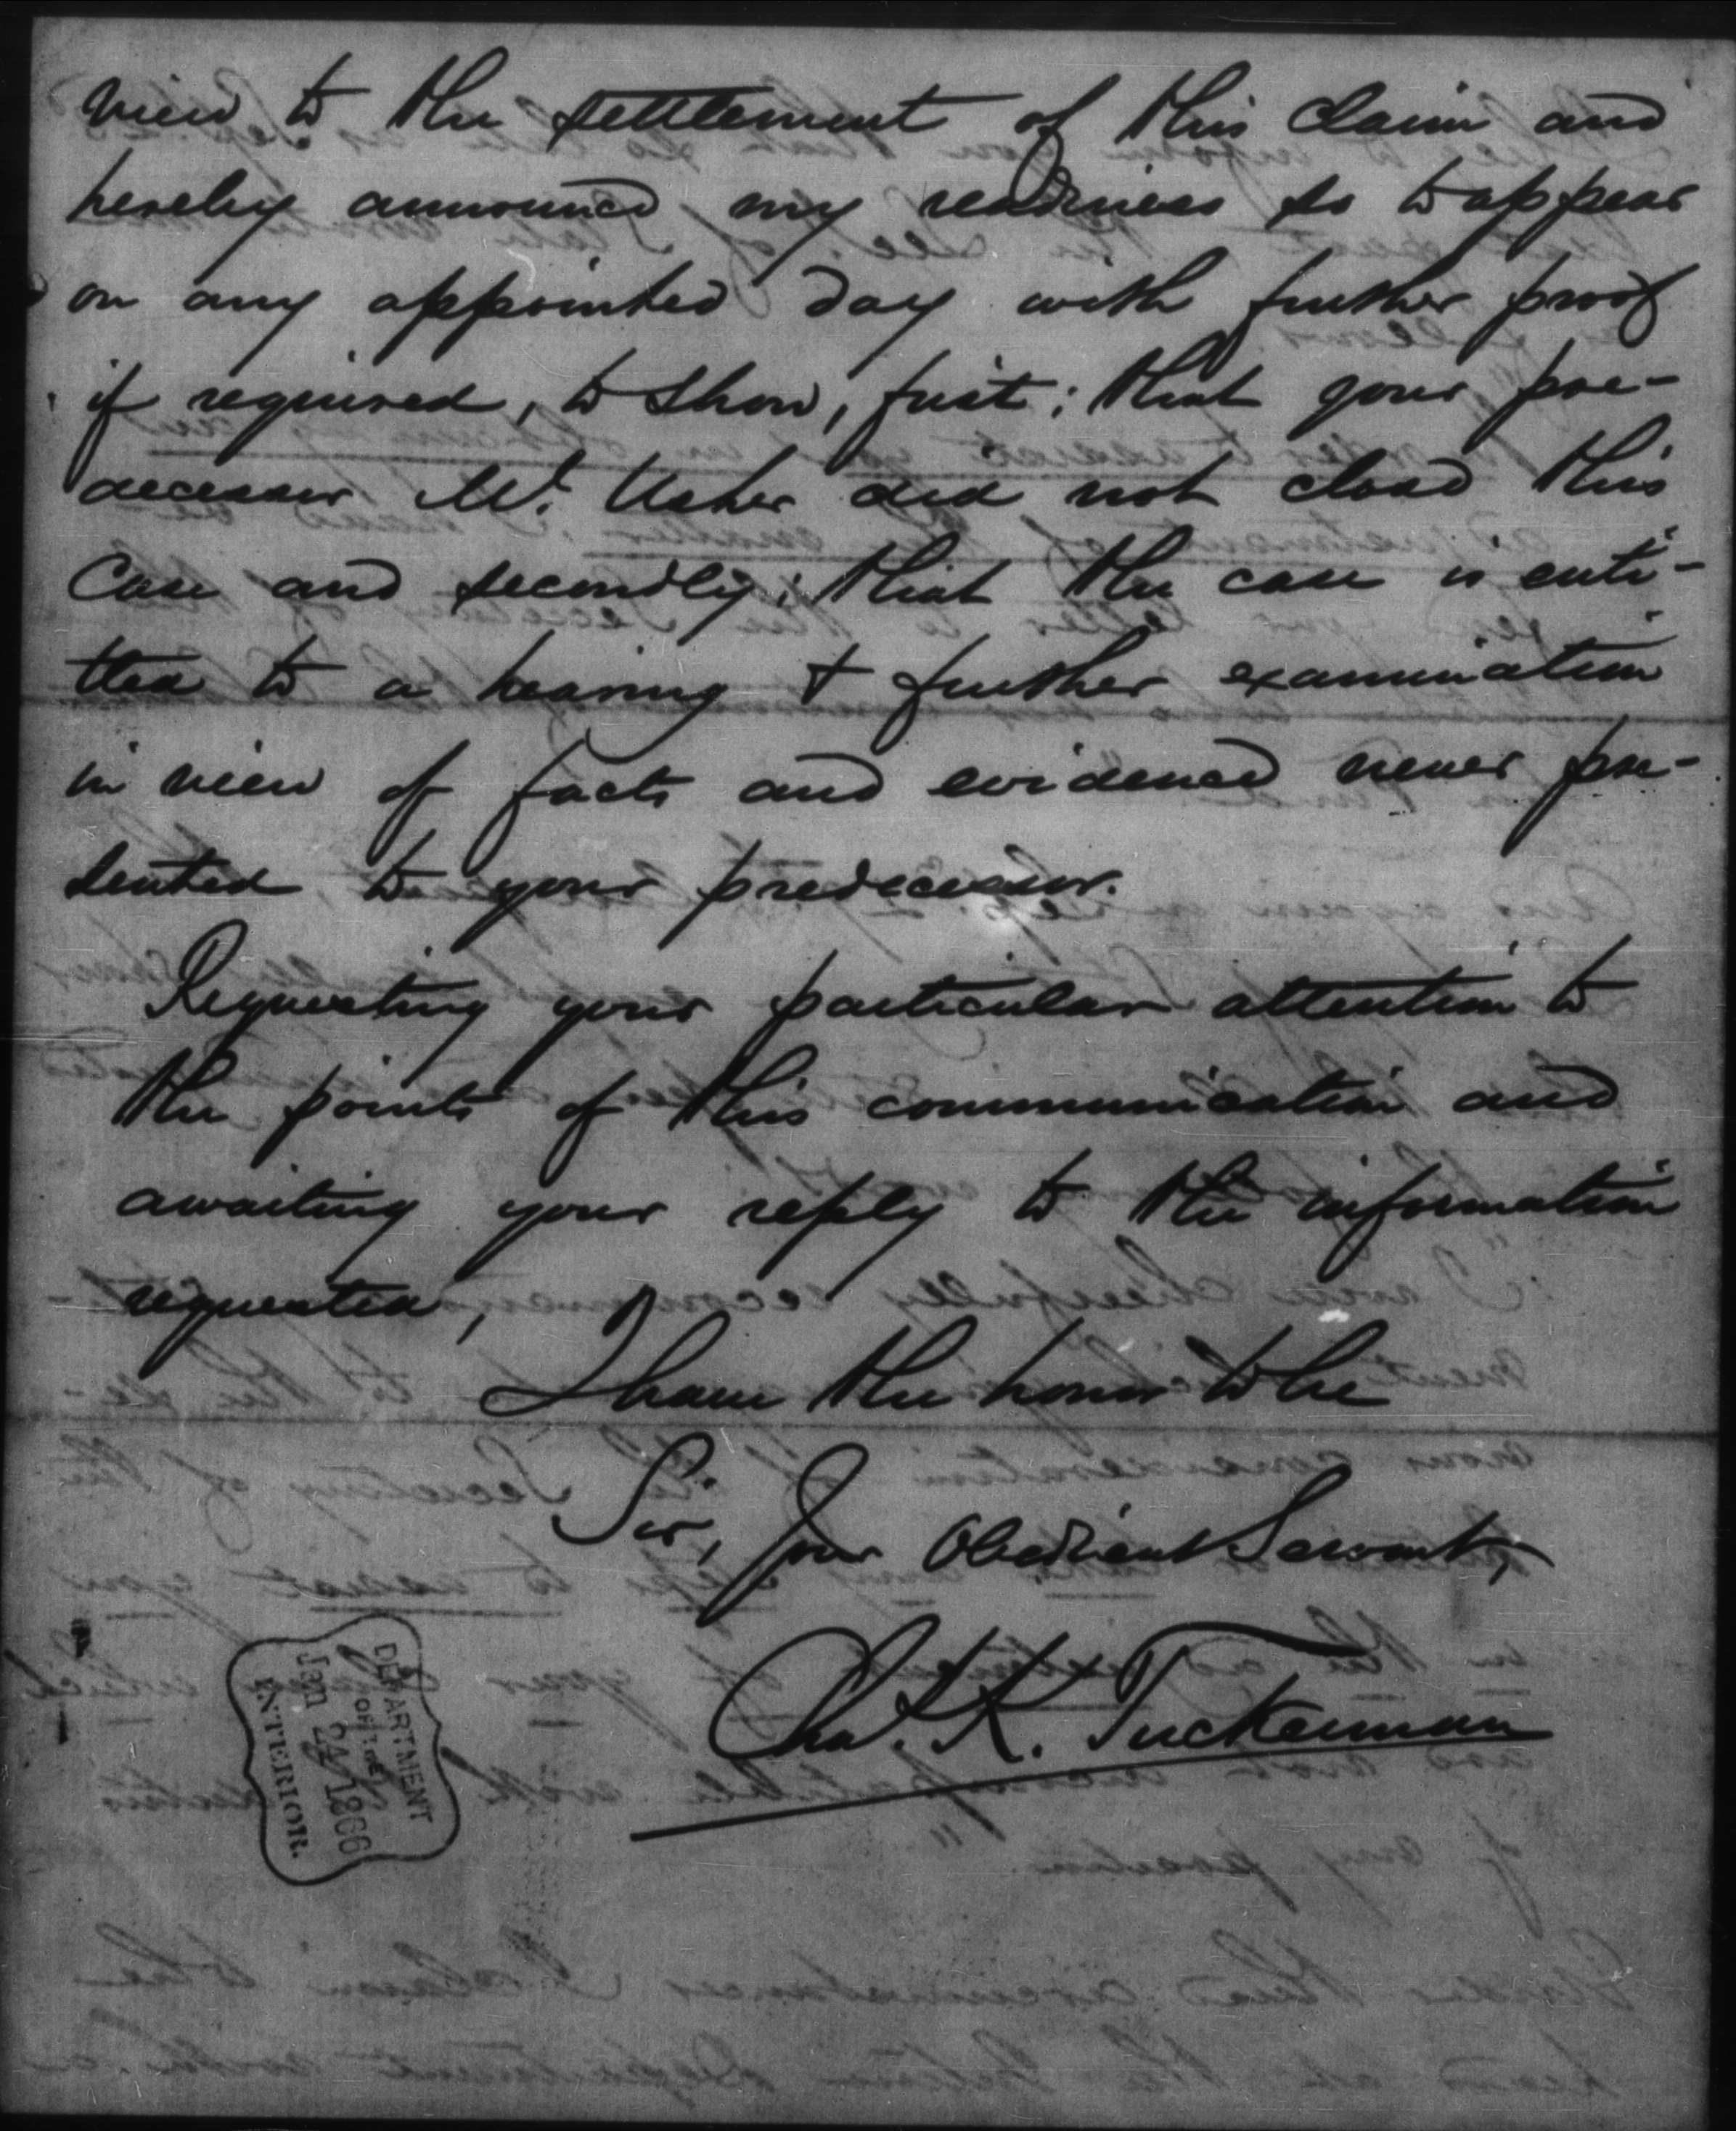 view to the settlement of this claim and
hereby announce my readiness so to appear
on any appointed day with further proof
if required, to show, first; that your pre-
decessor Mr. Usher did not close this
case and secondly; that the case is enti-
tled to a hearing & further examination
in view of facts and evidence never pre-
sented to your predecessor.
Requesting your particular attention to
the points of this communication and
awaiting your reply to the information
requested,
I have the honor to be
Sir, Your Obedient Servant,
Chas. K. Tuckerman
DEPARTMENT
OF THE
Jan 24 1866
INTERIOR.